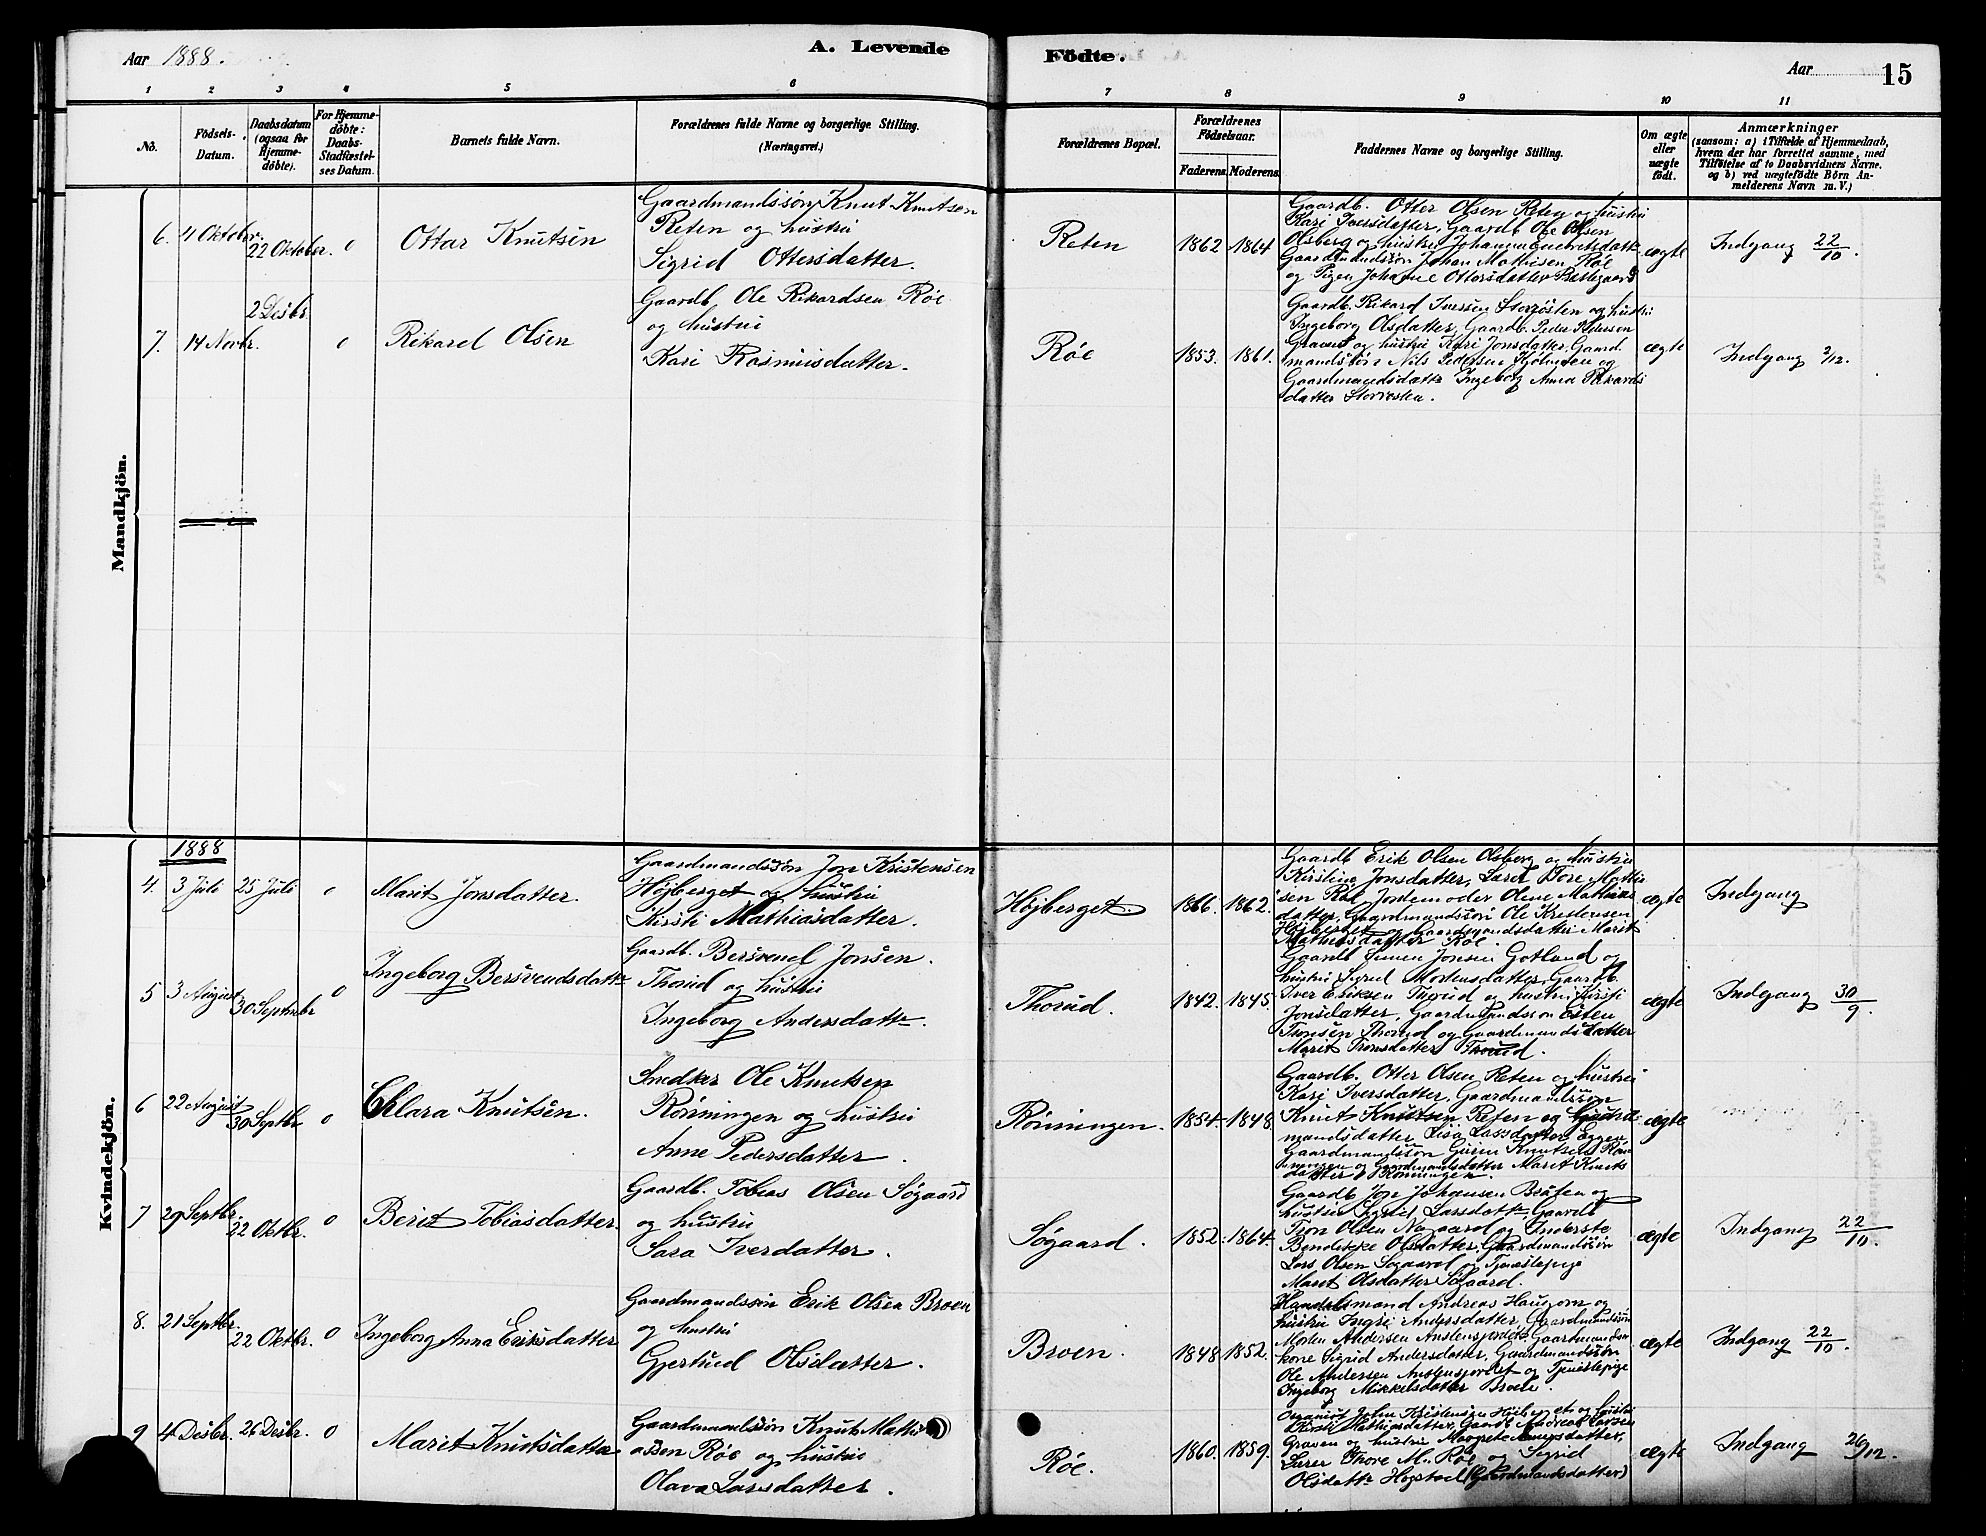 Aar 1888.
A. Levende
Födte.
Aar
15
1
2
3
4
5
6
7
8
9
10
11
No.
Födsels-
Datum.
Daabsdatum
(ogsaa for
Hjemme-
döbte).
For Hjemme-
döbte:
Daabs-
Stadfæstel-
ses Datum.
Barnets fulde Navn.
Forældrenes fulde Navne og borgerlige Stilling.
(Næringsvei.)
Forældrenes Bopæl.
Forældrenes
Födselsaar.
Faderens.
Moderens.
Faddernes Navne og borgerlige Stilling.
Om ægte
eller
uægte
födt.
Anmærkninger
(saasom: a) i Tilfælde af Hjemmedaab,
hvem der har forrettet samme, med
Tilföielse af to Daabsvidners Navne.
og b) ved uægtefödte Börn An-
melderens Navn m. V.)
Mandkjön.
6.
4 Oktober.
22 Oktober.
0
Ottar Knutsen
Gaardmandssøn Knut Knutsen
Reten og hustru
Sigrid Ottersdatter.
Reten
1862
1864
Gaardb. Otter Olsen Reten og hustru
Kari Iversdatter, Gaardb. Ole Olsen
Olsberg og hustru Johanna
Gaardmandssøn Johan Mathisen Røe
og Pigen Johanne Ottersdatter
ægte
Indgang 22/10.
7.
14 Novbr.
2 Desbr.
0
Rikard Olsen
Gaardb. Ole Rikardsen Røe
og hustru
Kari Rasmusdatter.
Røe
1853.
1861.
Gaardb. Rikard Iversen Storrøsten og hustru
Ingeborg Olsdatter, Gaardb. Peder Pedersen
Graven og hustru Kari Jonsdatter, Gaard-
mandssøn Nils Pedersen og
Gaardmandsdatter Ingeborg Anna Rikards
datter Storrøsten.
ægte
Indgang 2/12.
Kvindekjön.
1888
4.
3 Juli
25 Juli
0
Marit Jonsdatter.
Gaardmandssøn Jon Kristensen
Højberget og hustru
Kirsti Mathiasdatter.
Højberget.
1866.
1862.
Gaardb Erik Olsen Olsberg og hustru
Kirstine Jonsdatter, Lærer Tore Mathi
sen Røe Jordemoder Olene Mathias
datter, Gaardmandssøn Ole Kristensen
Højberget og Gaardmandsdatter Marit
Mathiasdatter Røe.
ægte
Indgang
5
3 August
30 Septmbr
0
Ingeborg Bersvendsdatter
Gaardb. Bersvend Jonsen.
Thorud og hustru
Ingeborg Andersdatter.
Thorud.
1842.
1845.
Gaardb Simen Jonsen Gotland og
hustru Sigrid Mortensdatter, Gaardb.
Iver Eriksen Thorud og hustru Kirsti
Jonsdatter, Gaardmandssøn Esten
Tronsen Thorud og Gaardmandsdatter
Marit Tronsdatter Thorud.
ægte
Indgang 30/9.
6
22 August
30 Septbr
0
Clara Knutsen.
Snedker Ole Knutsen
Rønningen og hustru
Anne Pedersdatter.
Rønningen.
1854
1848
Gaardb. Otter Olsen Reten og hustru
Kari Iversdatter, Gaardmandssøn
Knut Knutsen Reten og Gaard-
mandsdatter Lisa Larsdatter Eggen
Gaardmandssøn Knutsen Røn
ningen og Gaardmandsdatter Marit Knuts
datter Rønningen.
ægte
7
29 Septbr.
22 Oktbr.
0
Berit Tobiasdatter.
Gaardb. Tobias Olsen Søgaard
og hustru
Sara Iverdatter.
Søgaard.
1852.
1864
Gaardb Jon Johansen og
hustru Sigrid Larsdatter, Gaardb
Tron Olsen Nygaard og
Olsdatter, Gaardmandssøn
Lars Olsen Søgaard og Tjenestepige
Marit Olsdatter Søgaard.
ægte
Indgang 22/10
8.
21 Septbr.
22 Oktbr.
0
Ingeborg Anna Eriksdatter
Gaardmandssøn Erik Olsen Broen
og hustru
Gjertrud Olsdatter.
Broen.
1848
1852.
Handelsmand Andreas Haugom og
hustru Ingri Andersdatter, Gaardmandssøn
Morten Andersen Gaardmands
kone Sigrid Andersdatter, Gaardmandssøn
Ole Andersen og Tjenestepige
Ingeborg Mikkelsdatter Broen.
ægte
Indgang 22/10.
9
4 Desbr.
26 Desbr.
0
Marit Knutsdatter
Gaardmandssøn Knut Mathi
assen Røe og hustru
Olava Larsdatter.
Røe.
1860.
1859.
John Kristensen Højberget og hustru
Kirsti Mathiasdatter, Gaardb Andreas Larsen
Graven og hustru
Lærer Thore M. Røe og Sigrid
Olsdatter Hogstad (Gaardmandsdatter)
ægte
Indgang 26/12.